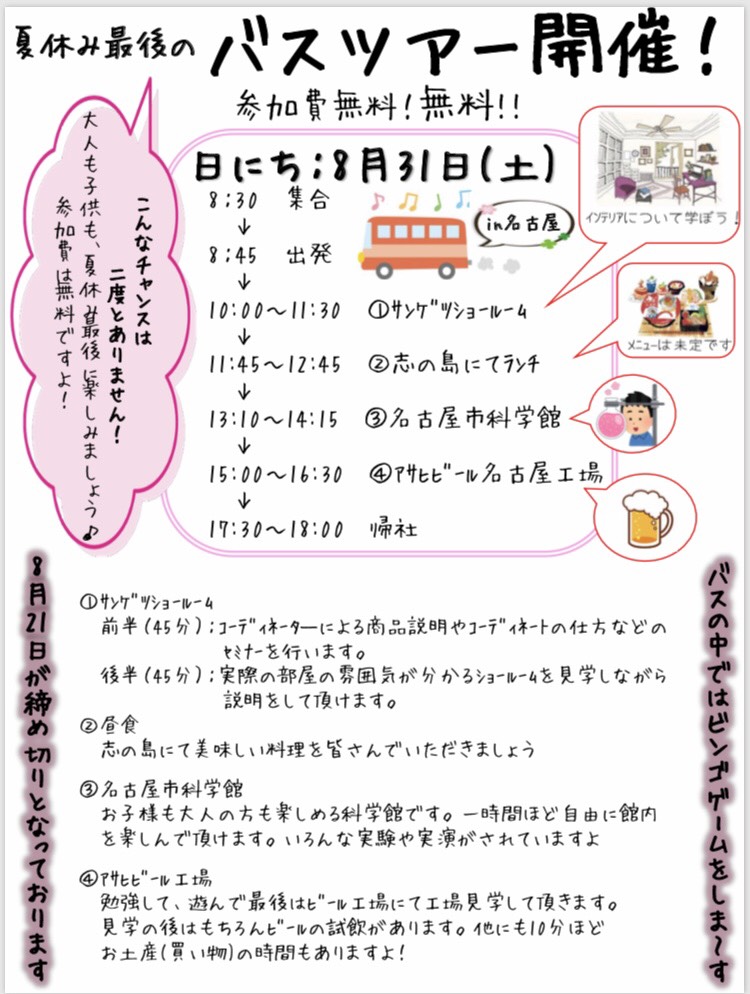 夏休み最後の バスツアー開催！
参加費無料！無料!!
こんなチャンスは
二度とありません！
大人も子供も、夏休み最後に楽しみましょう♪
参加費は無料ですよ！
日にち；8月31日(土)
8：30 集合
↓
8：45 出発
↓
10：00～11：30 ①ｻﾝｹﾞﾂｼｮｰﾙｰﾑ
↓
11：45～12：45 ②志の島にてﾗﾝﾁ
↓
13：10～14：15 ③名古屋市科学館
↓
15：00～16：30 ④ｱｻﾋﾋﾞｰﾙ名古屋工場
↓
17：30～18：00 帰社
in名古屋
ｲﾝﾃﾘｱについて学ぼう！
ﾒﾆｭｰは未定です
8月21日が締め切りとなっております
バスの中ではビンゴゲームをしま～す
①ｻﾝｹﾞﾂｼｮｰﾙｰﾑ
前半(45分)；ｺｰﾃﾞｨﾈｰﾀｰによる商品説明やｺｰﾃﾞｨﾈｰﾄの仕方などの
ｾﾐﾅｰを行います。
後半(45分)；実際の部屋の雰囲気が分かるｼｮｰﾙｰﾑを見学しながら
説明をして頂けます。
②昼食
志の島にて美味しい料理を皆さんでいただきましょう
③名古屋市科学館
お子様も大人の方も楽しめる科学館です。一時間ほど自由に館内
を楽しんで頂けます。いろんな実験や実演がされていますよ
④ｱｻﾋﾋﾞｰﾙ工場
勉強して、遊んで最後はﾋﾞｰﾙ工場にて工場見学して頂きます。
見学の後はもちろんﾋﾞｰﾙの試飲があります。他にも10分ほど
お土産(買い物)の時間もありますよ！